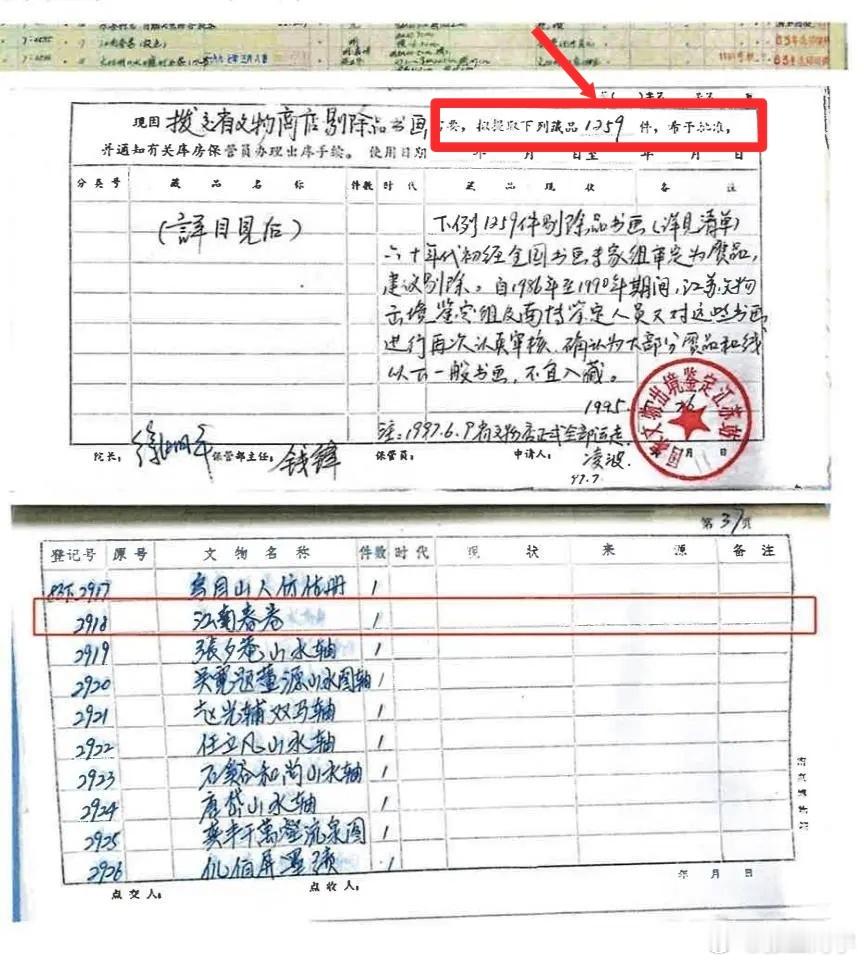 江南春卷
现因 拨交省文物商店剔除品书画 需要，拟提取下列藏品 1259 件，希予批准，
并通知有关库房保管员办理出库手续。 使用日期 年 月 日至 年 月 日
分类号 藏品名称 件数 时代 藏品现状 备注
(詳目見后)
下列1259件剔除品书画(详见清单)
六十年代初经全国书画专家组审定为赝品,
建议剔除。自1986年至1990年期间,江苏文物
出境鉴定组及南博鉴定人员又对这些书画
进行再次认真审核.确认为大部分赝品和线
以下一般书画,不宜入藏。
1995
注:1997.6.9省文物店正式全部运走
院长: 徐湖平 保管部主任: 钱锋 保管员: 申请人: 凌波
97.7.
国家文物出境鉴定江苏站
第 37 页
登记号 原号 文物名称 件数 时代 现状 来源 备注
2917 乌目山人仿古册 1
2918 江南春卷 1
2919 張夕菴山水轴 1
2920 吴寛题董源山水图轴 1
2921 赵光辅双马轴 1
2922 任立凡山水轴 1
2923 石谿和尚山水轴 1
2924 唐岱山水轴 1
2925 奚丰千萬壑流泉图 1
2926 仇伯屏墨 1
年 月 日
点交人: 点收人: